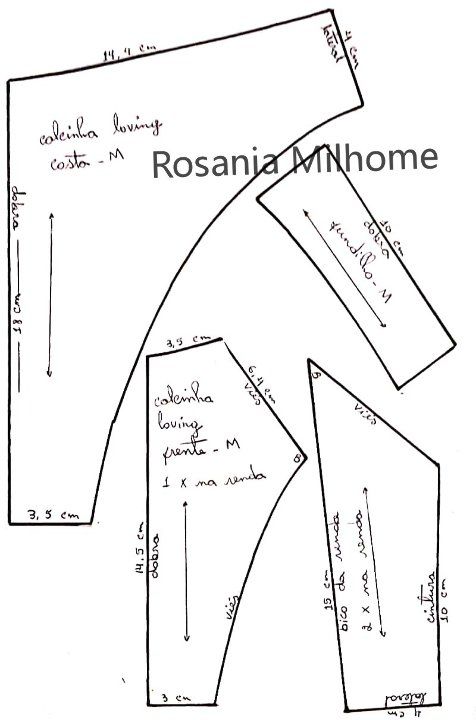 14,4 cm
4 cm
lateral
calcinha loving
costa - M
Rosania Milhome
dobra
18 cm
10 cm
dobra
fundilho - M
3,5 cm
3,5 cm
6,4 cm
viés
calcinha
loving
frente - M
1 x na renda
B
14,5 cm
dobra
viés
3 cm
viés
15 cm
bico da renda
2 x na renda
cintura
10 cm
lateral
4 cm